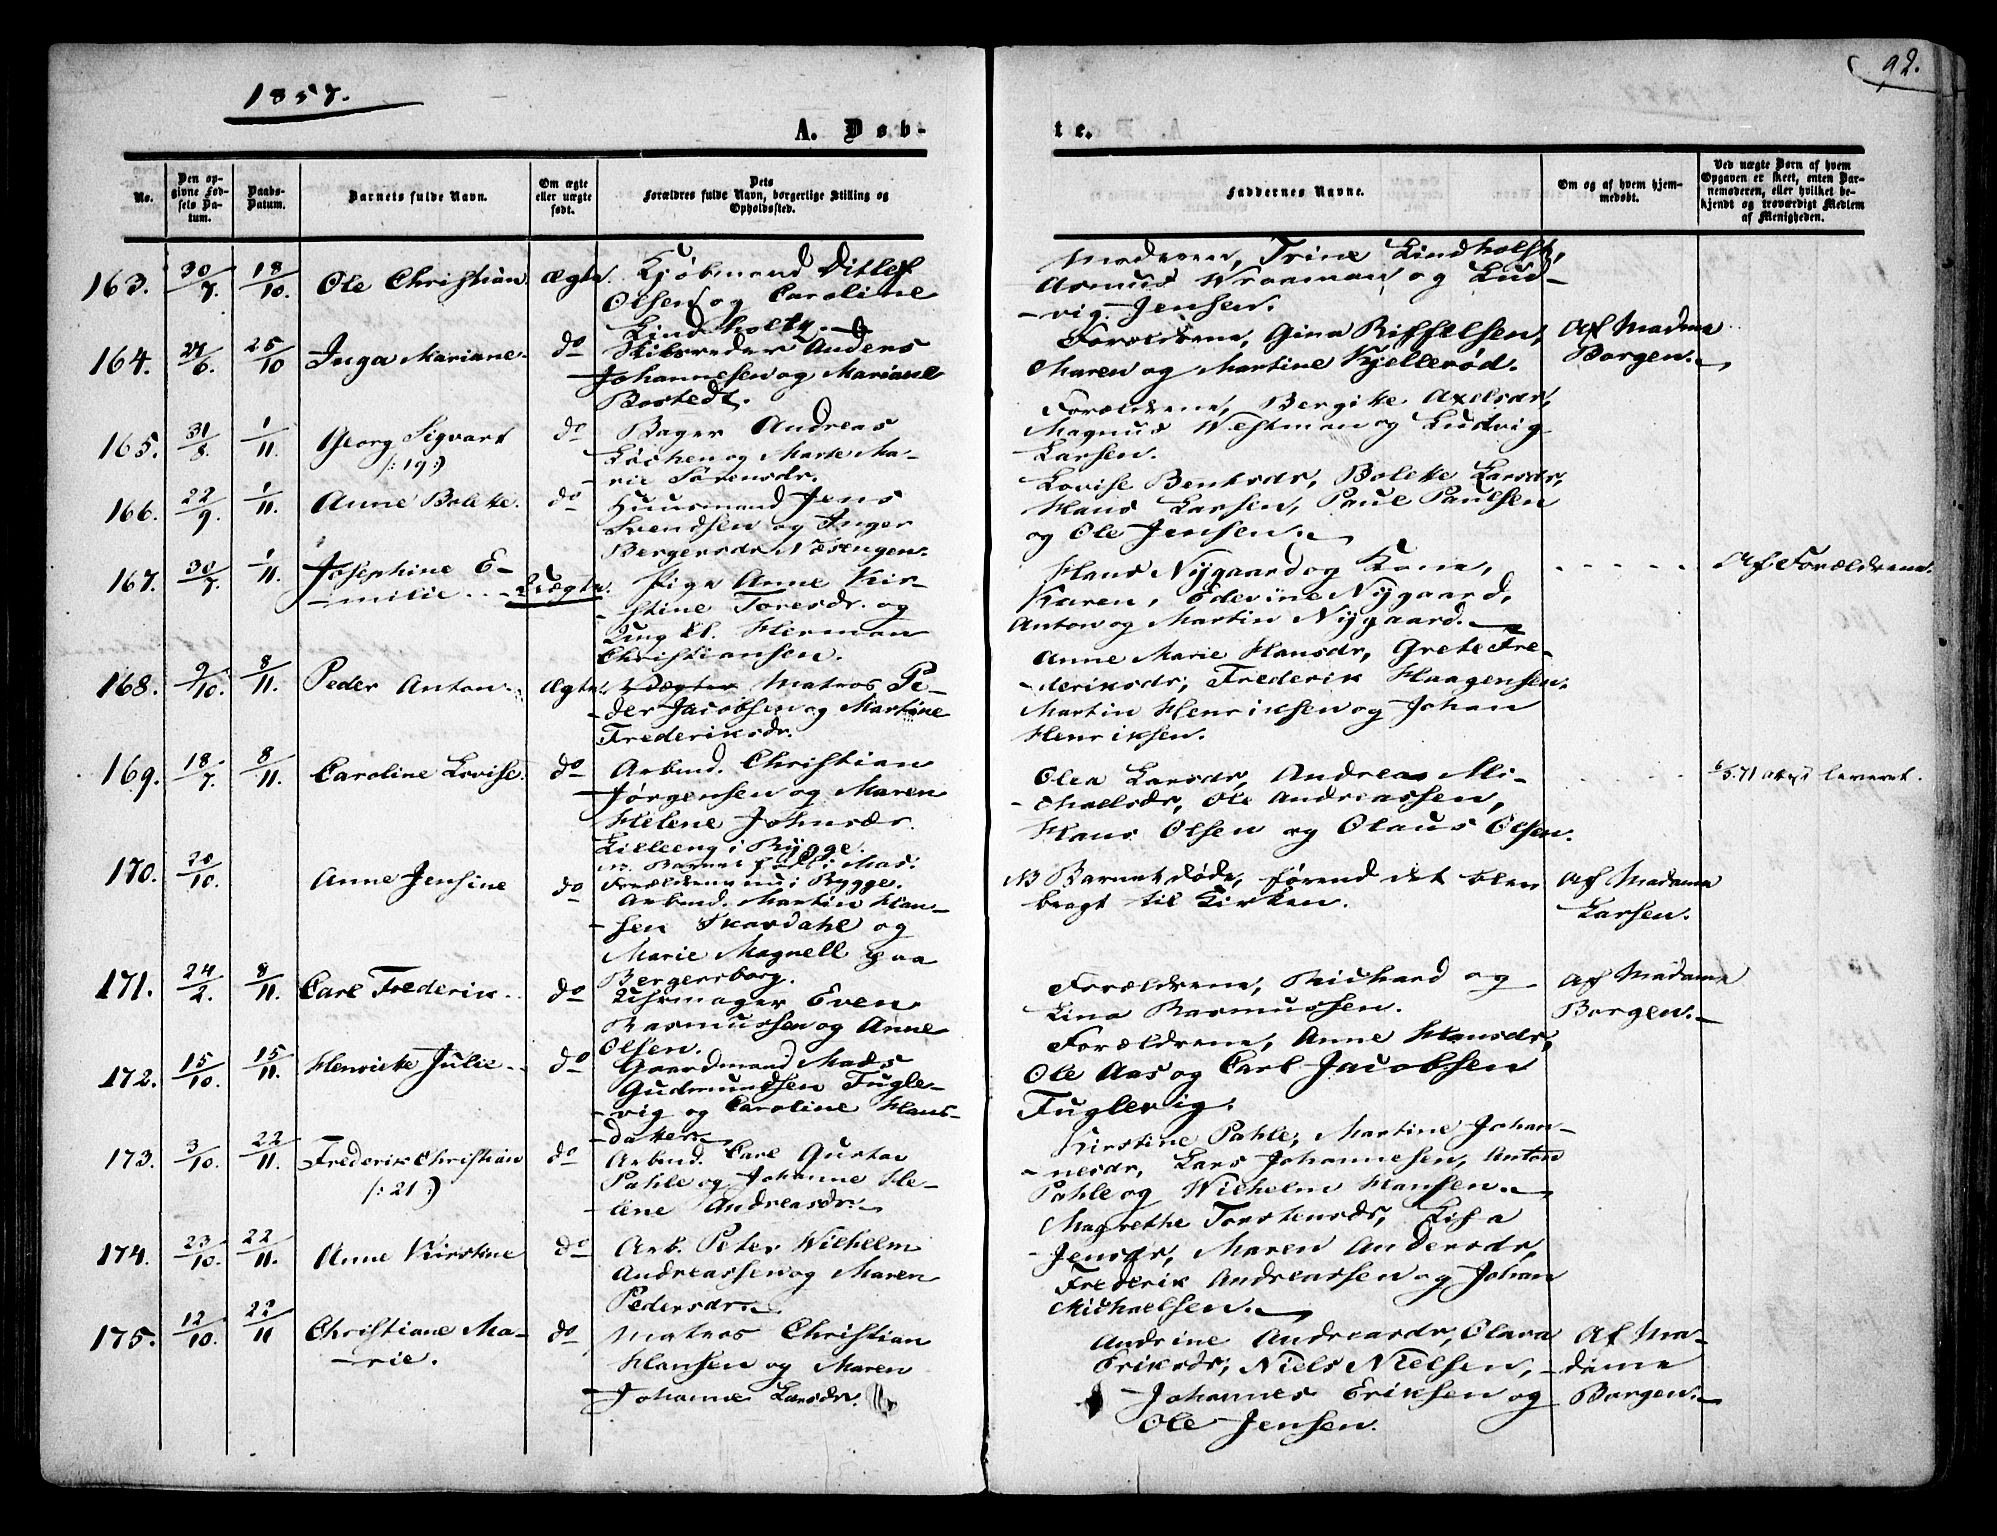 1857.
92.
A. Døb-
te.
No.
Den op-
givne Fød-
sels Da-
tum.
Daabs-
Datum.
Barnets fulde Navn.
Om ægte
eller uægte
født.
Dets
Forældres fulde Navn, borgerlige Stilling og
Opholdssted.
Faddernes Navne.
Om og af hvem hjem-
medøbt.
Ved uægte Børn af hvem
Opgaven er skeet, enten Bar-
nemoderen, eller hvilket be-
kjendt og troværdigt Medlem
af Menigheden.
163. 30/7. 18/10. Ole Christian. ægte.
Kjøbmand Ditlef
Olsen og Caroline
Lindholtz.
Moderen, Trine Lindholst,
Asmus Wraaman og Lud-
vig Jensen.
164. 27/6. 25/10 Inga Mariane. do
Skibsreder Anders
Johannesen og Mariane
Bostedt.
Forældrene, Gina Riffelsen,
Maren og Martine Kjellerød.
Af Madme
Borgen.
165. 31/8. 1/11. Georg Sigvart
(:19:)
do
Bager Andreas
Löchen og Marte Ma-
rie Sørensdr.
Forældrene, Bergite Axelsdr,
Magnus Westman og Ludvig
Larsen.
166. 22/9. 1/11. Anne Bolette. do
Huusmand Jens
Svendsen og Inger
Bergersdr Næsengen.
Lovise Bentsdr, Bolette Larsdr,
Hans Larsen, Paul Paulsen
og Ole Jensen.
167. 30/7. 1/11. Josephine E-
milie. Uægte.
Pige Anne Kir-
stine Toresdr. og
Ung Kl. Herman
Christiansen.
Hans Nygaard og Kone,
Karen, Edevine Nygaard,
Anton og Martin Nygaard.
Af Forældrene.
168. 9/10. 8/11. Peder Anton. ægte
Matros Pe-
der Jacobsen og Martine
Frederiksdr.
Anne Marie Hansdr, Grete Fre-
deriksdr, Frederik Haagensen,
Martin Henriksen og Johan
Henriksen.
169. 18/7. 8/11. Caroline Lovise. do
Arbmd. Christian
Jørgensen og Maren
Helene Johnsdr.
Lilleeng i Rygge.
Barnet født i
Forældrene nu i Rygge.
Olea Larsdr, Andrea Mi-
chaelsdr, Ole Andreassen,
Hans Olsen og Olaus Olsen.
6/5.71 leveret.
170. 20/10. Anne Jensine do
Arbmd. Martin Han-
sen Skardahl og
Marie Magnell paa
Bergersborg.
NB Barnet døde, førend det blev
bragt til Kirken.
Af Madame
Larsen.
171. 24/2. 8/11. Carl Frederik. do
Uhrmager Even
Rasmussen og Anne
Olsen.
Forældrene, Richard og
Lina Rasmussen.
Af Madame
Borgen.
172. 15/10. 15/11. Henriette Julie. do
Gaardmand Mads
Gudmundsen Fugle-
vig og Caroline Hans-
datter.
Forældrene, Anne Hansdr,
Ole Aas og Carl Jacobsen
Fuglevig.
173. 3/10. 22/11. Frederik Christian
(:21:)
do
Arbmd. Carl Gustav
Pahle og Johanne He-
lene Andreasdr.
Kirstine Pahle, Martine Johan-
nesdr, Lars Johannesen, Anton
Pahle og Wilhelm Hansen.
174. 23/10. 22/11. Anne Kirstine do
Arb. Peter Wilhelm
Andreassen og Maren
Pedersdr.
Magrethe Torstensdr, Lisa
Jensdr, Maren Andersdr,
Frederik Andreassen og Johan
Michaelsen.
175. 12/10. 22/11 Christiane Ma-
rie. do
Matros Christian
Hansen og Maren
Johanne Larsdr.
Andrine Andreasdr, Olava
Eriksdr, Niels Nielsen,
Johannes Eriksen og
Ole Jensen.
Af Ma-
dame
Borgen.